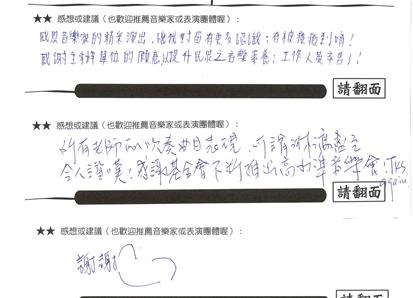 ★★ 感想或建議（也歡迎推薦音樂家或表演團體喔）：
感謝音樂家的精采演出，讓我對
感謝主辦單位的願意以提升民眾之音樂素養；工作人員辛苦了！
請翻面
★★ 感想或建議（也歡迎推薦音樂家或表演團體喔）：
所有老師的演奏曲目表現，可謂
令人讚嘆！感謝基金會不斷推出高水準音樂會！Tks again
請翻面
★★ 感想或建議（也歡迎推薦音樂家或表演團體喔）：
謝謝
請翻面